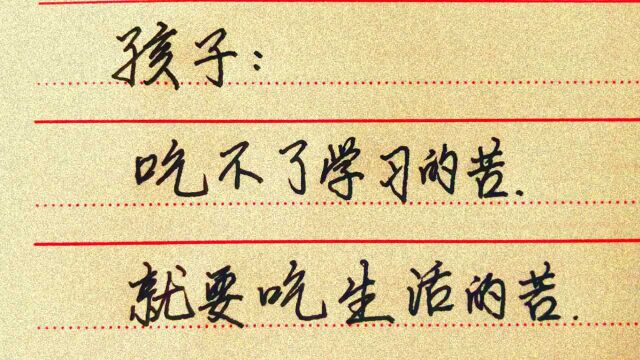 孩子:
吃不了学习的苦.
就要吃生活的苦.